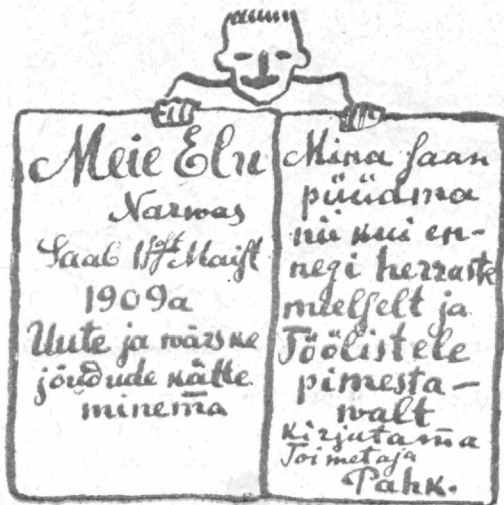 Meie Elu
Narwas
Saab 15st Maist
1909a
Uute ja wärske
jõudude kätte
minema
Mina saan
püüdma
nii kui en-
negi herraste
meelselt ja
Töölistele
pimesta-
walt
kirjutama
Toimetaja
Pahk.